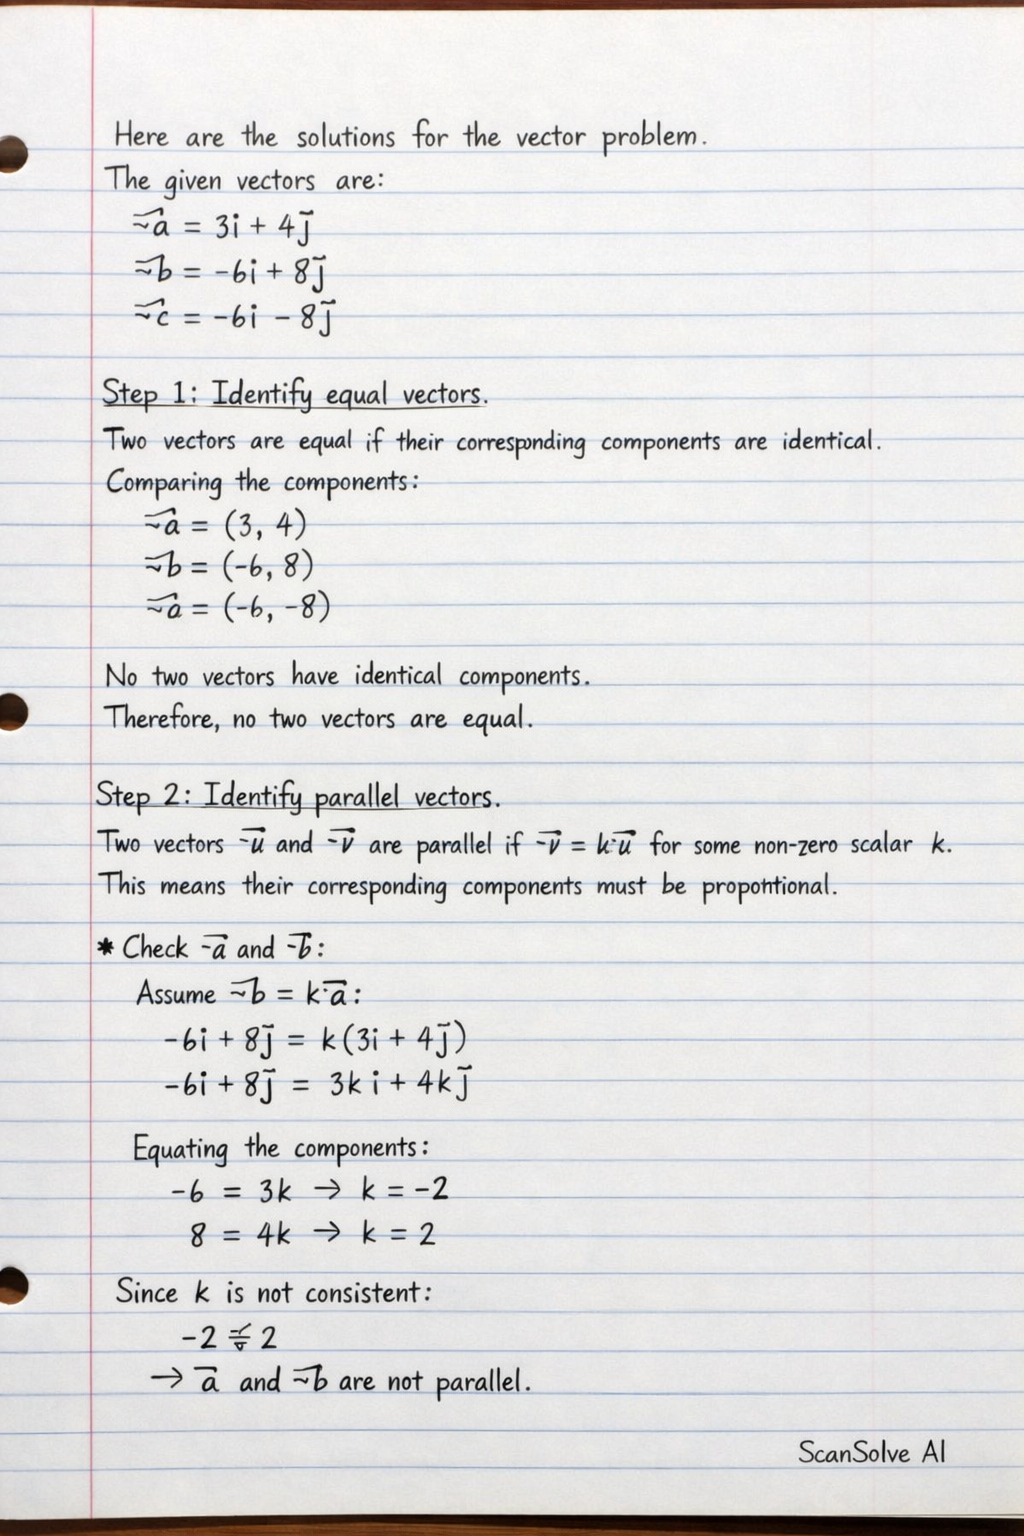 Here are the solutions for the vector problem.
The given vectors are:
~a⃗ = 3i + 4j̄
~b⃗ = -6i + 8j̄
~c⃗ = -6i - 8j̄
Step 1: Identify equal vectors.
Two vectors are equal if their corresponding components are identical.
Comparing the components:
~a⃗ = (3, 4)
~b⃗ = (-6, 8)
~a⃗ = (-6, -8)
No two vectors have identical components.
Therefore, no two vectors are equal.
Step 2: Identify parallel vectors.
Two vectors -u⃗ and -v⃗ are parallel if -v⃗ = k·u⃗ for some non-zero scalar k.
This means their corresponding components must be propohtional.
* Check -a⃗ and -b⃗:
Assume ~b⃗ = k·a⃗:
-6i + 8j̄ = k(3i + 4j̄)
-6i + 8j̄ = 3k i + 4k j̄
Equating the components:
-6 = 3k → k = -2
8 = 4k → k = 2
Since k is not consistent:
-2 ≠ 2
→ a⃗ and ~b⃗ are not parallel.
ScanSolve AI